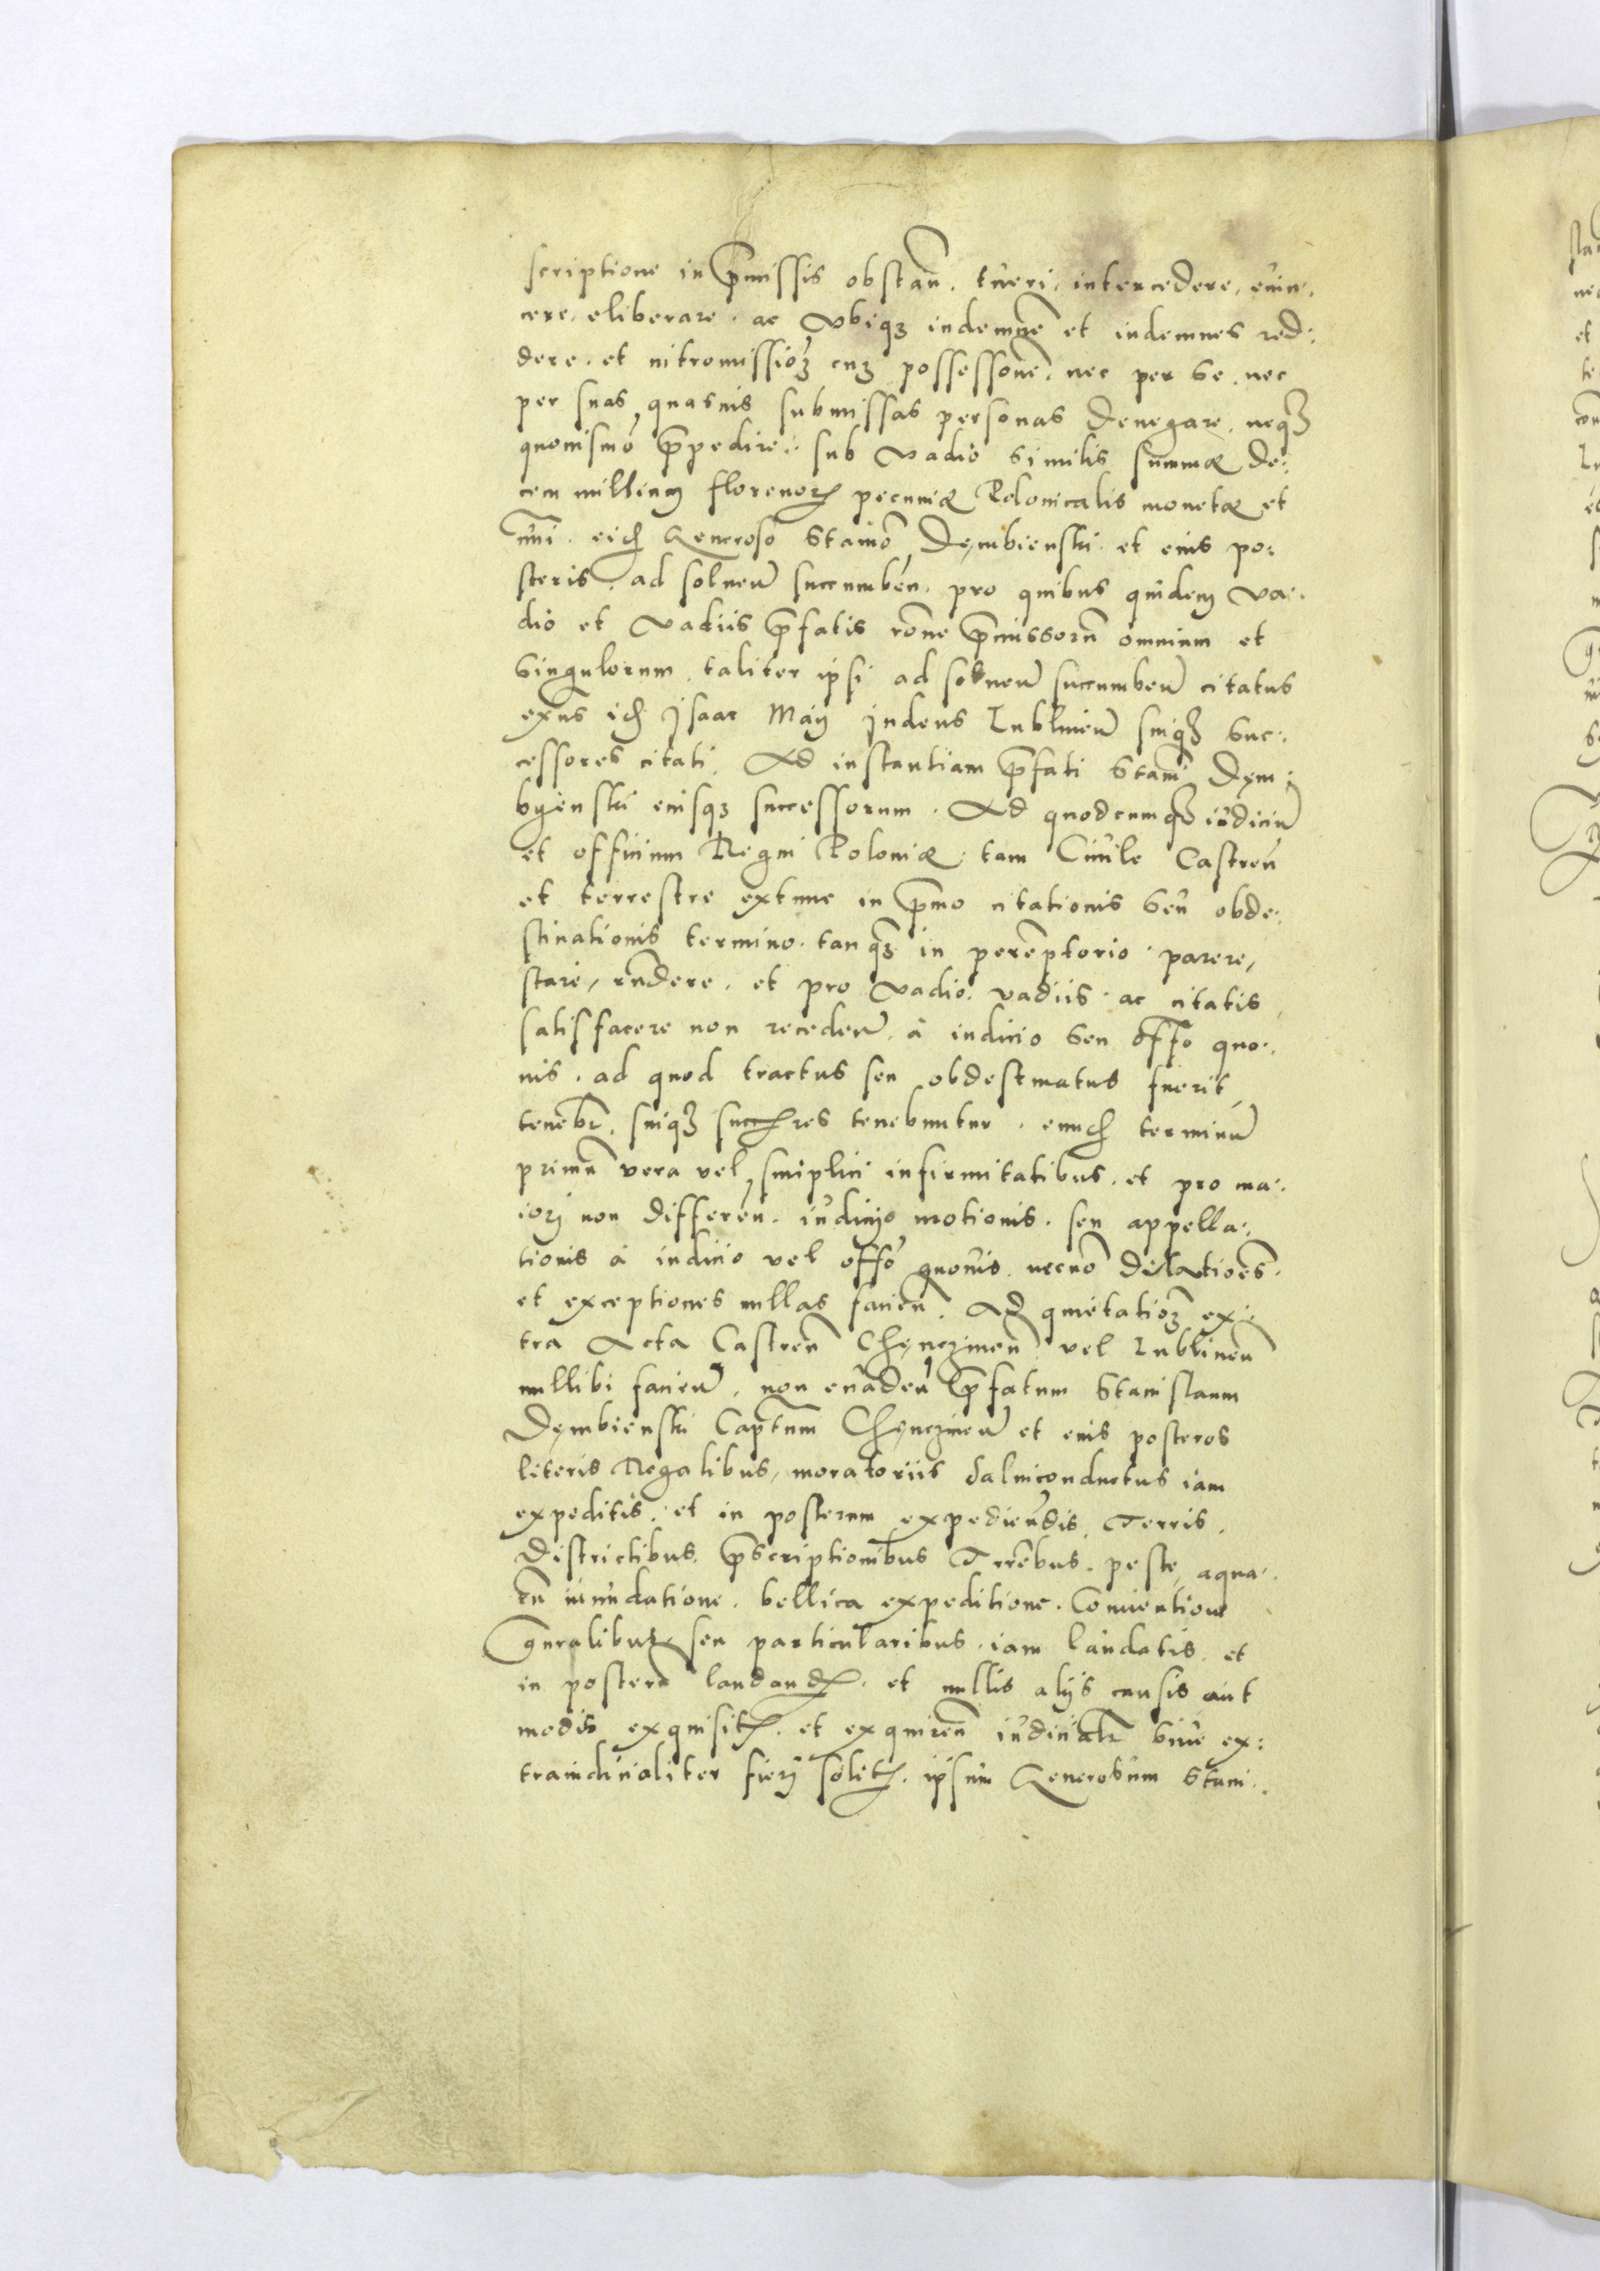 scriptione in p̄missis obstan̄. tueri. intercedere. euin.
cere. eliberare. ac vbiqꝫ indemnē et indemnes red:
dere. et intromissioꝫ cuꝫ possessonē. nec per se. nec
per suas quasuis submissas personas denegare. neqꝫ
quouismō p̄pedire. sub vadio similis summæ de:
cem millium florenorꝫ pecuniæ Polonicalis monetæ et
nūi. eidꝫ Generoso Stanō Dęmbienski et eius po:
steris. ad soluen̄ succumben̄. pro quibus quidem va:
dio et vadiis p̄fatis rōne p̄missorū omnium et
singulorum. taliter ipsi ad soluen̄ succumben̄ citatus
exns idꝫ Isaac Maij Iudeus Lublinen̄ suiqꝫ suc:
cessores citati. Ad instantiam p̄fati Stanī Dęm:
byenski eiusqꝫ successorum. Ad quodcumqꝫ iudiciū
et officium Regni Poloniæ tam Ciuile Castren̄
et terrestre extunc in p̄mo citationis seu obde:
stinationis termino. tanqꝫ in perēptorio. parere,
stare, rn̄dere. et pro vadio. vadiis. ac citatis
satisfacere non receden̄. à iudicio seu offō quo:
uis. ad quod tractus seu obdestinatus fuerit
tenebr. suiqꝫ succꝫres tenebuntur. eundꝫ terminū
primū vera vel simplici infirmitatibus. et pro ma:
iorj non differen̄. iudicio motionis. seu appella:
tionis à iudicio vel offō quouis. necnō dilatioēs.
et exceptiones nullas facien̄. Ad quietatioꝫ ex:
tra Acta Castren̄ Chęnczinen̄ vel Lublinen̄
nullibi facien̄. non euaden̄ p̄fatum Stanislaum
Dęmbienski Captnm̄ Chęnczinen̄ et eius posteros
literis Regalibus, moratoriis saluiconductus iam
expeditis. et in posterum expediendis Terris.
Districtibus. p̄scriptionibus Trrēbus. peste, aqua:
rū inundatione. bellica expeditione. Conuentione
Gnralibus seu particularibus. iam laudatis. et
in posterū laudandꝫ. et nullis alijs causis aut
modis exquisitꝫ. et exquiren̄ iudicialr siue ex:
traiudicialiter fierj solitꝫ. ipsum Generosum Stani: